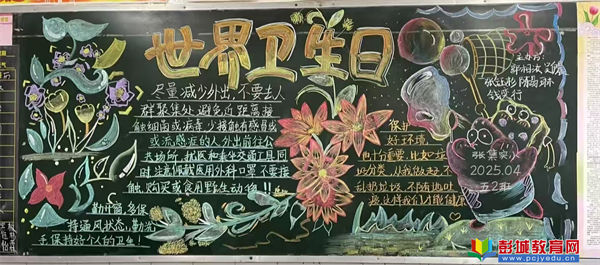 世界卫生日
尽量减少外出,不要去人
群聚集处避免近距离接
触细菌或病毒少接触有感冒或
或流感症的人外出前往公
共场所、就医和乘坐交通工具同
时注意佩戴医用外科口罩不要接
触、购买或食用野生动物!!
勤开窗,多保
持通风状态,勤洗
手保持好个人的卫生!
保护
好环境
也十分重要,比如垃
圾分类,从我做起,不
乱扔垃圾,不随地吐
主办方:
张
2025.04
五2班
彭城教育网
www.pcjyedu.cn